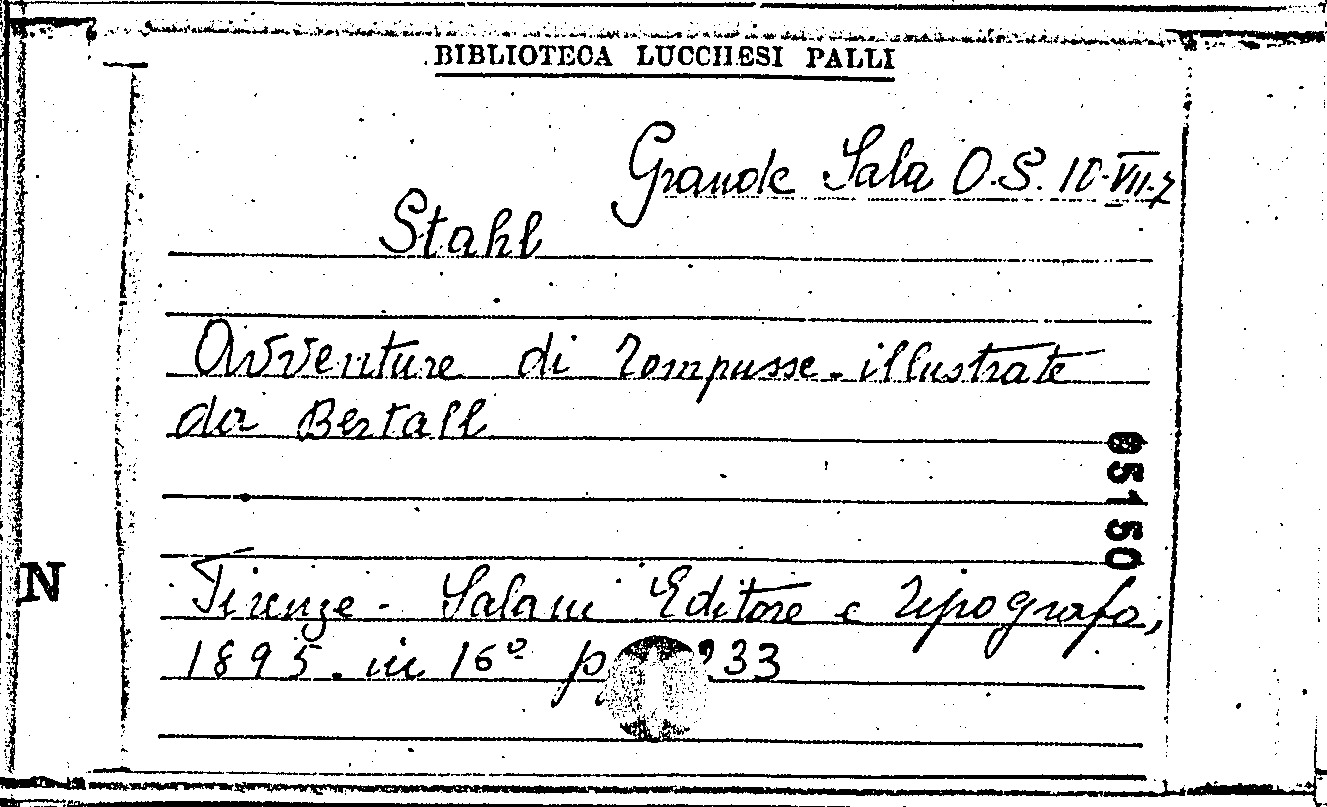 BIBLIOTECA LUCCHESI PALLI
Grande Sala O.S. 10-VII-7
Stahl
Avventure di Tompusse - illustrate
da Bertall
05150
N
Firenze - Salani Editore e Tipografo,
1895. in 16º p. 33